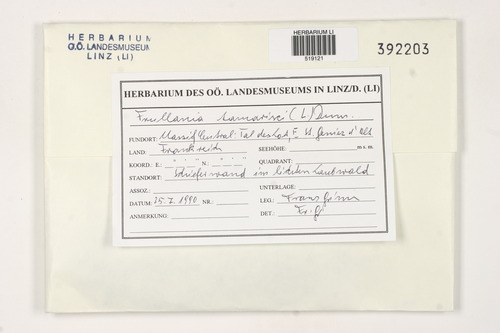 HERBARIUM
OÖ. LANDESMUSEUM
LINZ (LI)
HERBARIUM LI
519121
392203
HERBARIUM DES OÖ. LANDESMUSEUMS IN LINZ/D. (LI)
Frullania tamarisci (L.) Dum.
FUNDORT: Massif Central Tal des Lot, E St. Geniez d'Olt
LAND: Frankreich SEEHÖHE: m s. m.
KOORD.: E.: ° ' " N.: ° ' " QUADRANT:
STANDORT: Schieferwand im lichten Laubwald
ASSOZ.: UNTERLAGE:
DATUM: 25.7.1990 NR.: LEG.: Franz Grims
ANMERKUNG: DET.: Fr. G.